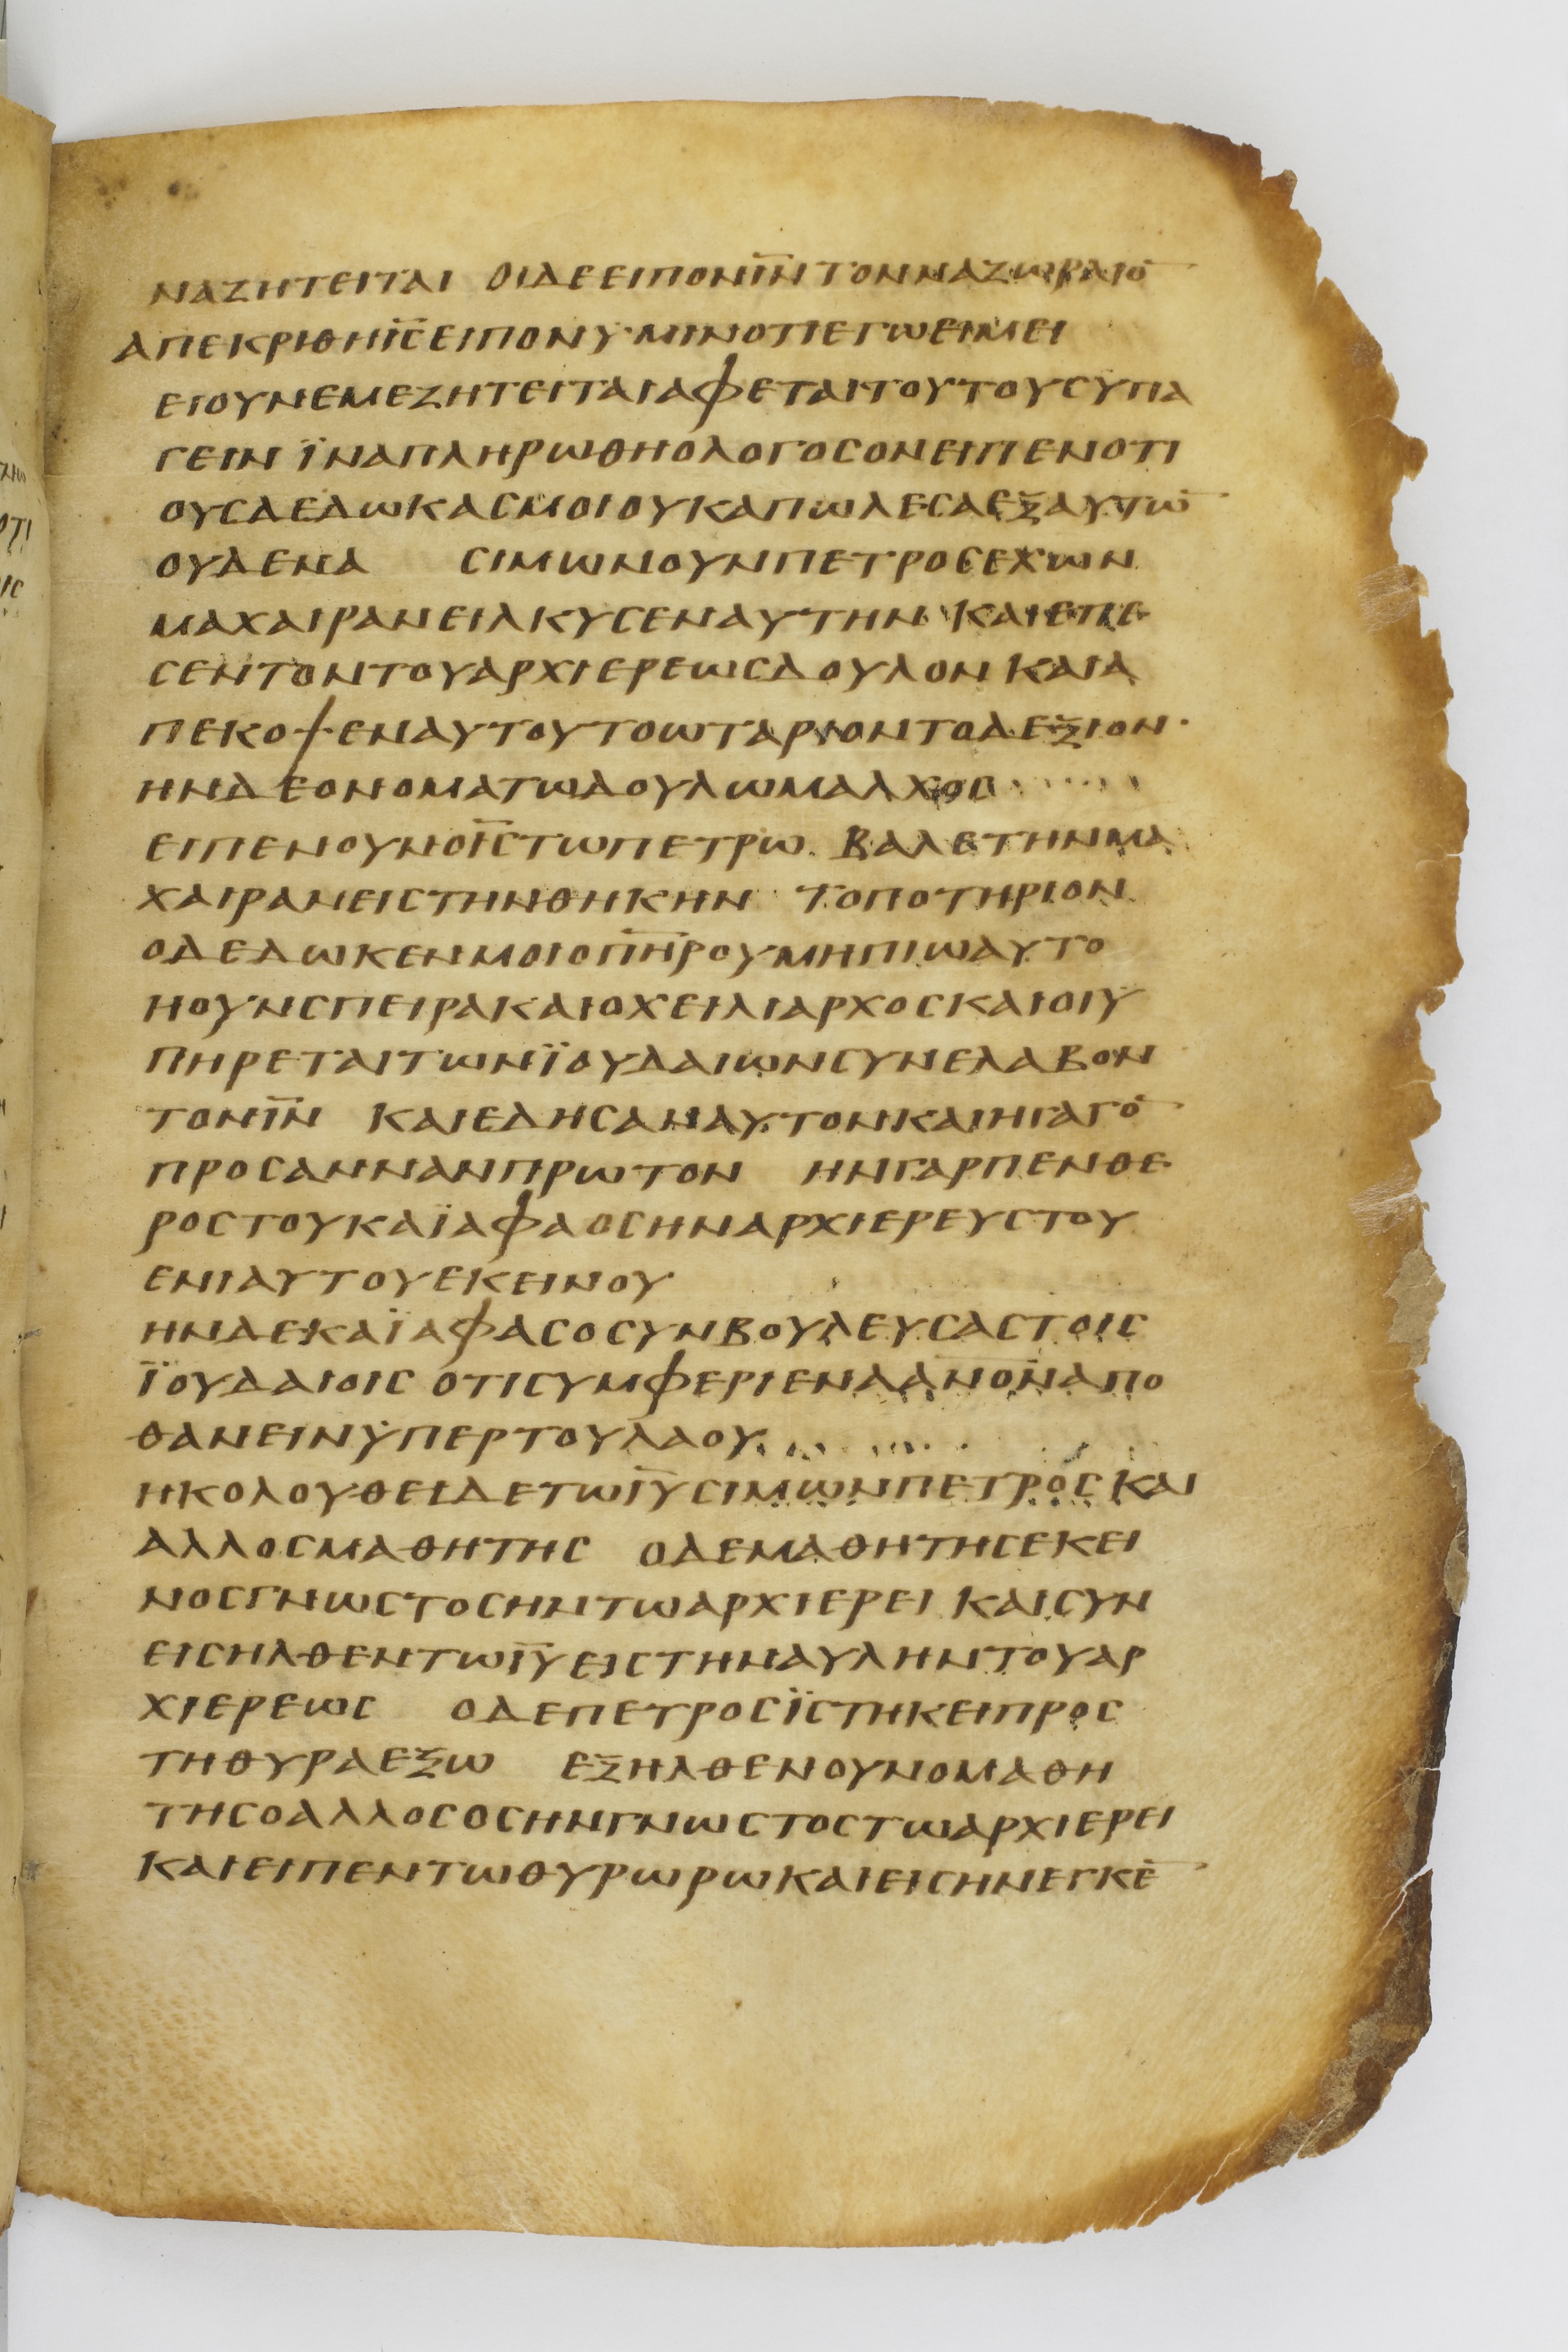 ΝΑΖΗΤΕΙΤΑΙ ΟΙΔΕΕΙΠΟΝΙ̅Ν̅ΤΟΝΝΑΖΩΡΑΙΟ̅
ΑΠΕΚΡΙΘΗΙ̅C̅ΕΙΠΟΝΥ·ΜΙΝΟΤΙΕΓΩΕΙΜΕΙ
ΕΙΟΥΝΕΜΕΖΗΤΕΙΤΑΙΑΦΕΤΑΙΤΟΥΤΟΥCΥΠΑ
ΓΕΙΝ ΪΝΑΠΛΗΡΩΘΗΟΛΟΓΟCΟΝΕΙΠΕΝΟΤΙ
ΟΥCΔΕΔΩΚΑCΜΟΙΟΥΚΑΠΩΛΕCΑΕΞΑΥΤΩ̅
ΟΥΔΕΝΑ CΙΜΩΝΟΥΝΠΕΤΡΟCΕΧΩΝ
ΜΑΧΑΙΡΑΝΕΙΛΚΥCΕΝΑΥΤΗΝ ΚΑΙΕΠΕ
CΕΝΤΟΝΤΟΥΑΡΧΙΕΡΕΩCΔΟΥΛΟΝ ΚΑΙΑ
ΠΕΚΟΨΕΝΑΥΤΟΥΤΟΩΤΑΡΙΟΝΤΟΔΕΞΙΟΝ·
ΗΝΔΕΟΝΟΜΑΤΩΔΟΥΛΩΜΑΛΧΟC
ΕΙΠΕΝΟΥΝΟΙ̅C̅ΤΩΠΕΤΡΩ ΒΑΛΕΤΗΝΜΑ
ΧΑΙΡΑΝΕΙCΤΗΝΘΗΚΗΝ ΤΟΠΟΤΗΡΙΟΝ
ΟΔΕΔΩΚΕΝΜΟΙΟΠ̅Η̅ΡΟΥΜΗΠΙΩΑΥΤΟ
ΗΟΥΝCΠΕΙΡΑΚΑΙΟΧΕΙΛΙΑΡΧΟCΚΑΙΟΙΥ
ΠΗΡΕΤΑΙΤΩΝΪΟΥΔΑΙΩΝCΥΝΕΛΑΒΟΝ
ΤΟΝΙ̅Ν̅ ΚΑΙΕΔΗCΑΝΑΥΤΟΝΚΑΙΗΓΑΓΟ̅
ΠΡΟCΑΝΝΑΝΠΡΩΤΟΝ ΗΝΓΑΡΠΕΝΘΕ
ΡΟCΤΟΥΚΑΪΑΦΑΟCΗΝΑΡΧΙΕΡΕΥCΤΟΥ
ΕΝΙΑΥΤΟΥΕΚΕΙΝΟΥ
ΗΝΔΕΚΑΪΑΦΑCΟCΥΝΒΟΥΛΕΥCΑCΤΟΙC
ΪΟΥΔΑΙΟΙC ΟΤΙCΥΜΦΕΡΙΕΝΑΑ̅Ν̅Ο̅Ν̅ΑΠΟ
ΘΑΝΕΙΝΥΠΕΡΤΟΥΛΑΟΥ
ΗΚΟΛΟΥΘΕΙΔΕΤΩΙ̅Υ̅CΙΜΩΝΠΕΤΡΟCΚΑΙ
ΑΛΛΟCΜΑΘΗΤΗC ΟΔΕΜΑΘΗΤΗCΕΚΕΙ
ΝΟCΓΝΩCΤΟCΗΝΤΩΑΡΧΙΕΡΕΙ ΚΑΙCΥΝ
ΕΙCΗΛΘΕΝΤΩΙ̅Υ̅ΕΙCΤΗΝΑΥΛΗΝΤΟΥΑΡ
ΧΙΕΡΕΩC ΟΔΕΠΕΤΡΟCΪCΤΗΚΕΙΠΡΟC
ΤΗΘΥΡΑΕΞΩ ΕΞΗΛΘΕΝΟΥΝΟΜΑΘΗ
ΤΗCΟΑΛΛΟCΟCΗΝΓΝΩCΤΟCΤΩΑΡΧΙΕΡΕΙ
ΚΑΙΕΙΠΕΝΤΩΘΥΡΩΡΩΚΑΙΕΙCΗΝΕΓΚΕ̅